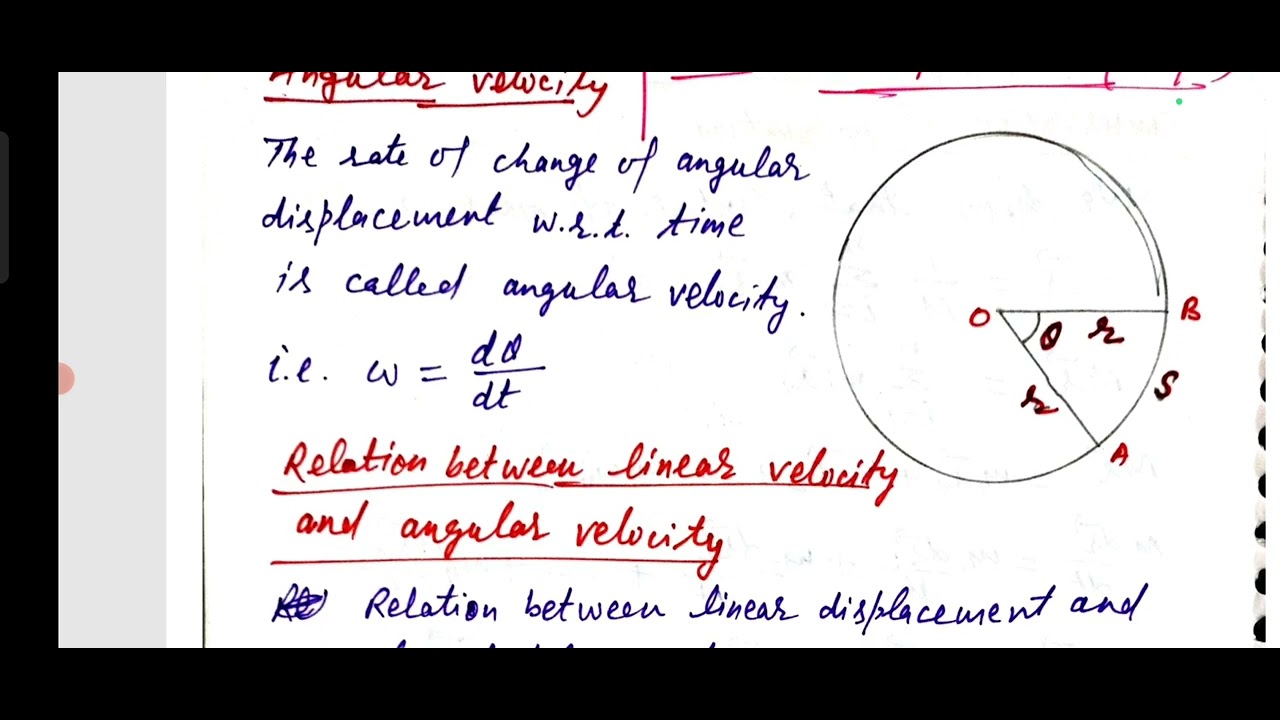 Angular velocity
The rate of change of angular
displacement w.r.t. time
is called angular velocity.
i.e. ω = dθ/dt
O
θ
r
B
r
S
A
Relation between linear velocity
and angular velocity
Relation between linear displacement and